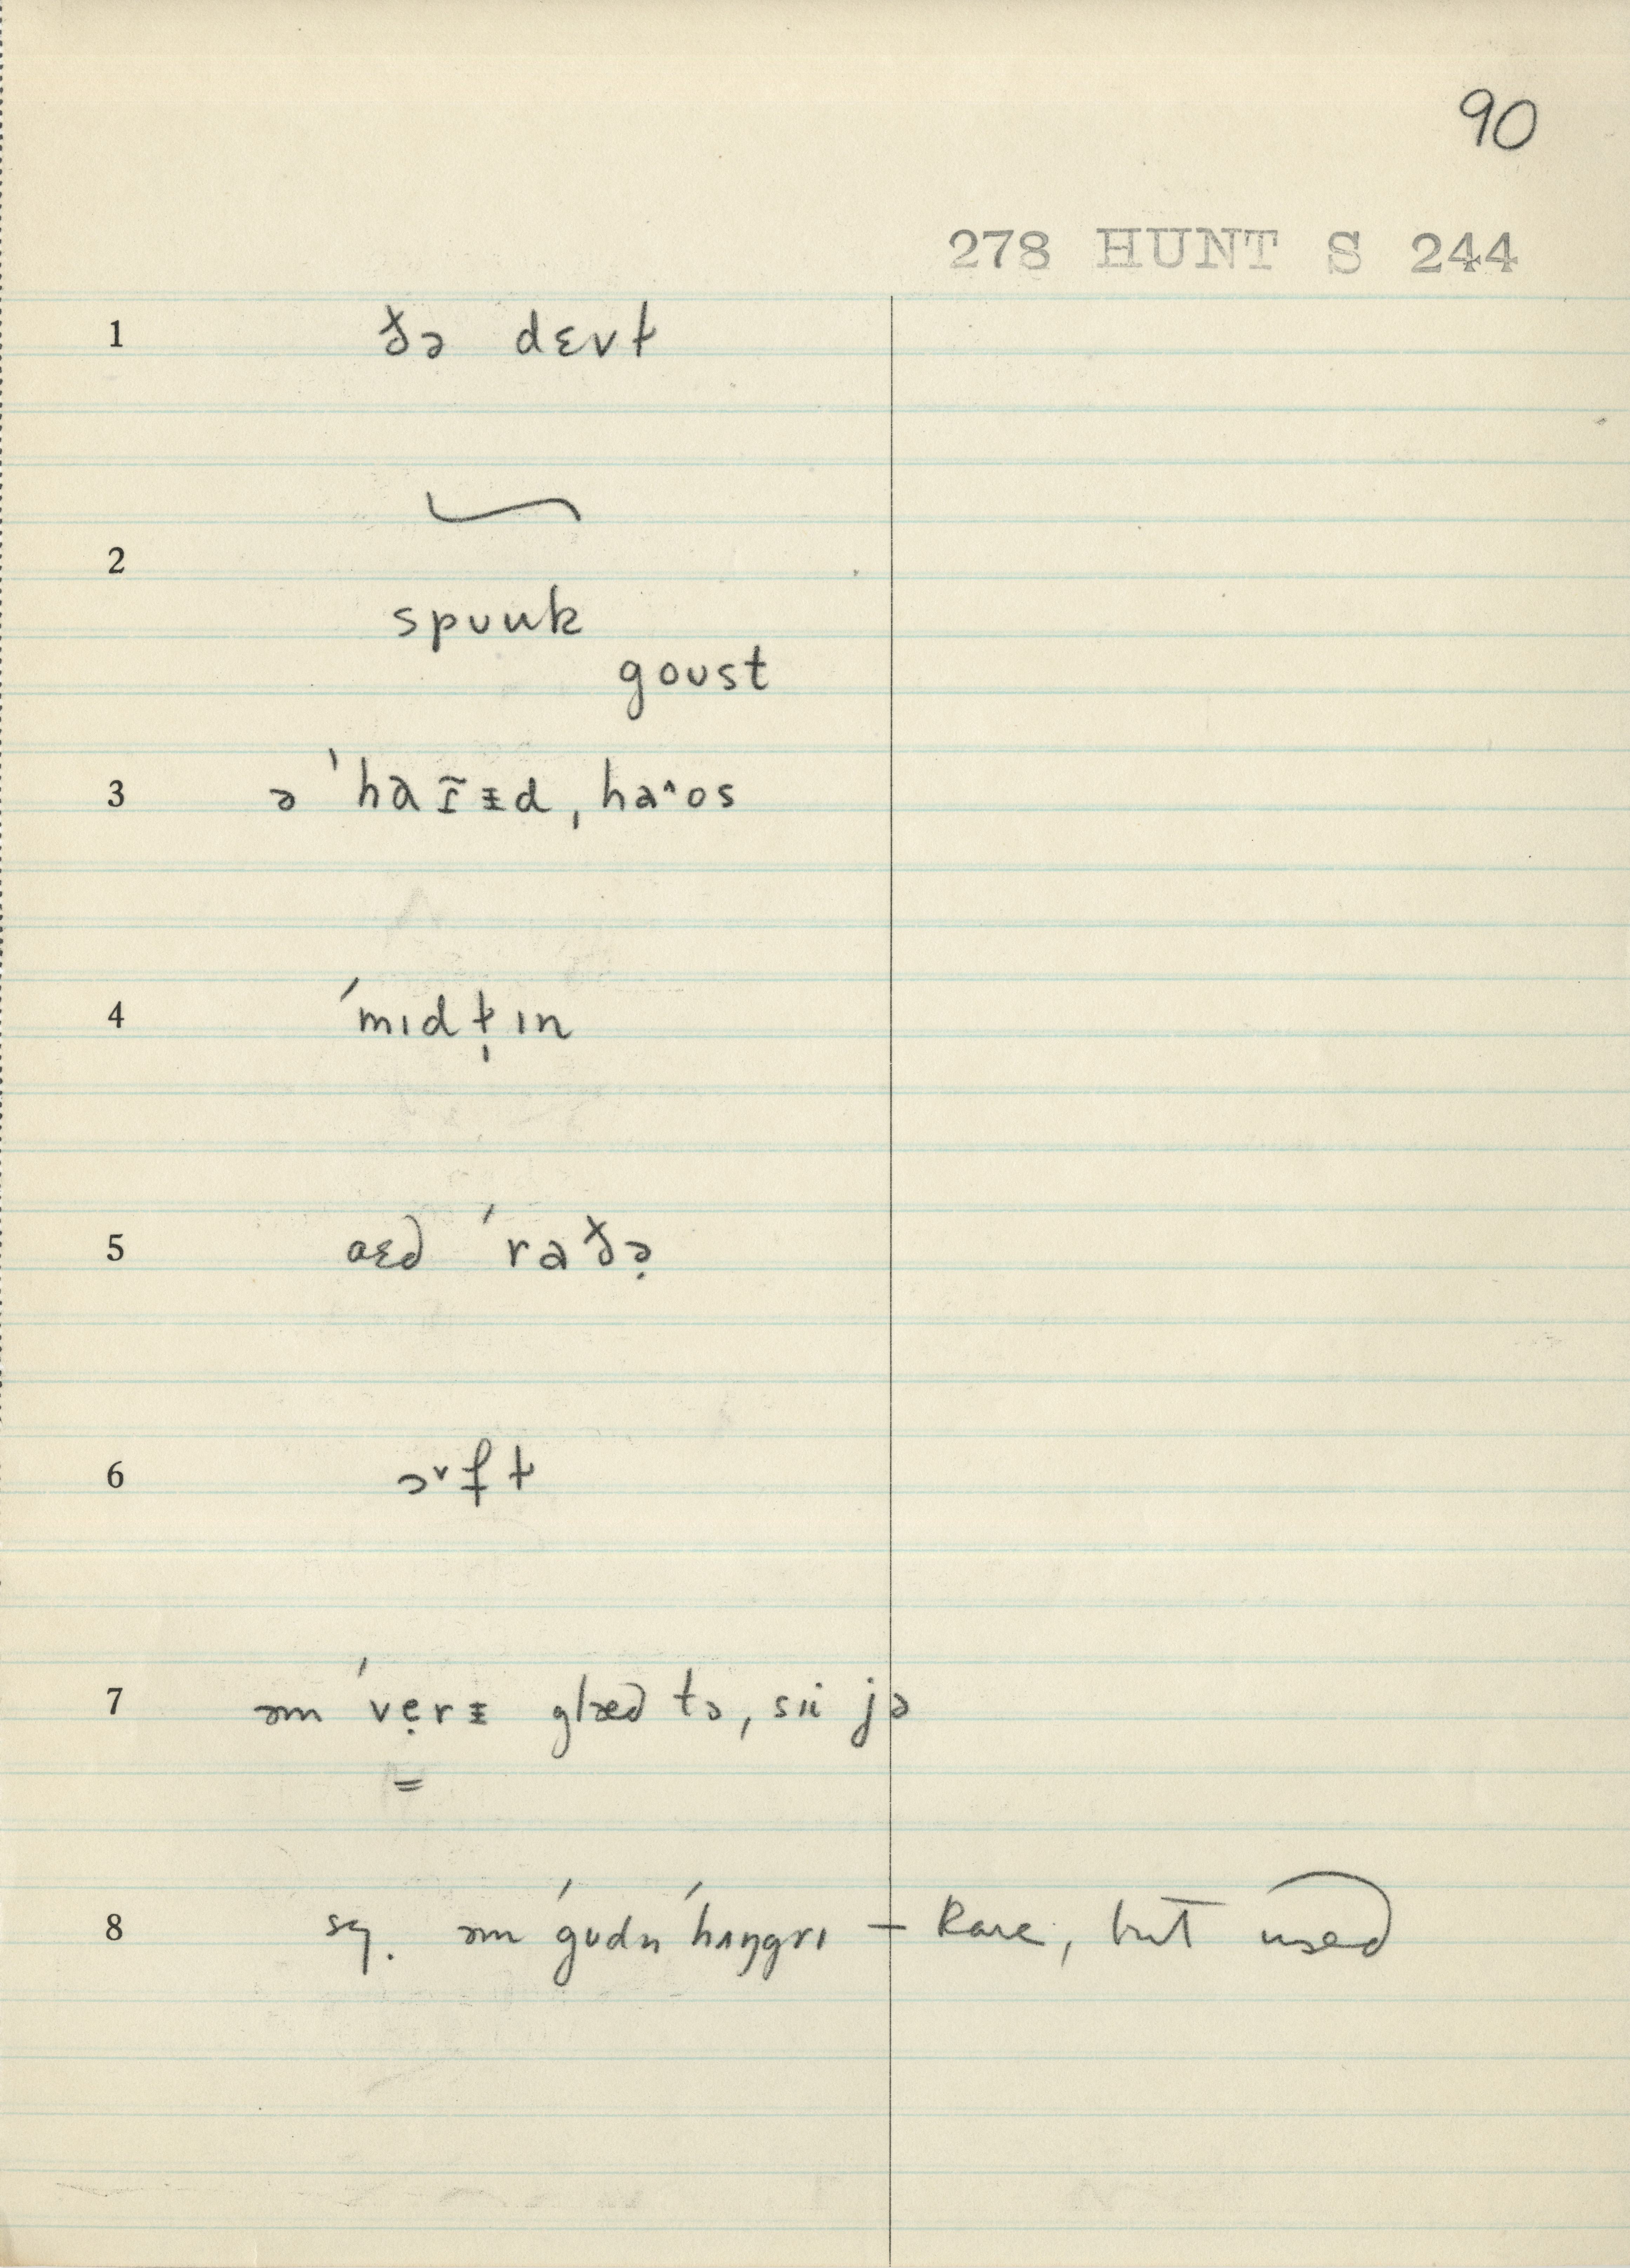 90
278 HUNT S 244
1 ðə dɛvɫ
2
spuuk
goust
3 ə ˈhaĩɪ̵d, haˆos
4 ˈmɩdɫ̩ɩn
5 aɛd ˈraðə̣
6 ɔˇfɫ
7 əm ˈvẹrɪ̵ glæd tə, sɩi jə
8 sq. əm ˈgudn ˈhʌŋgrɩ – Rare, but used